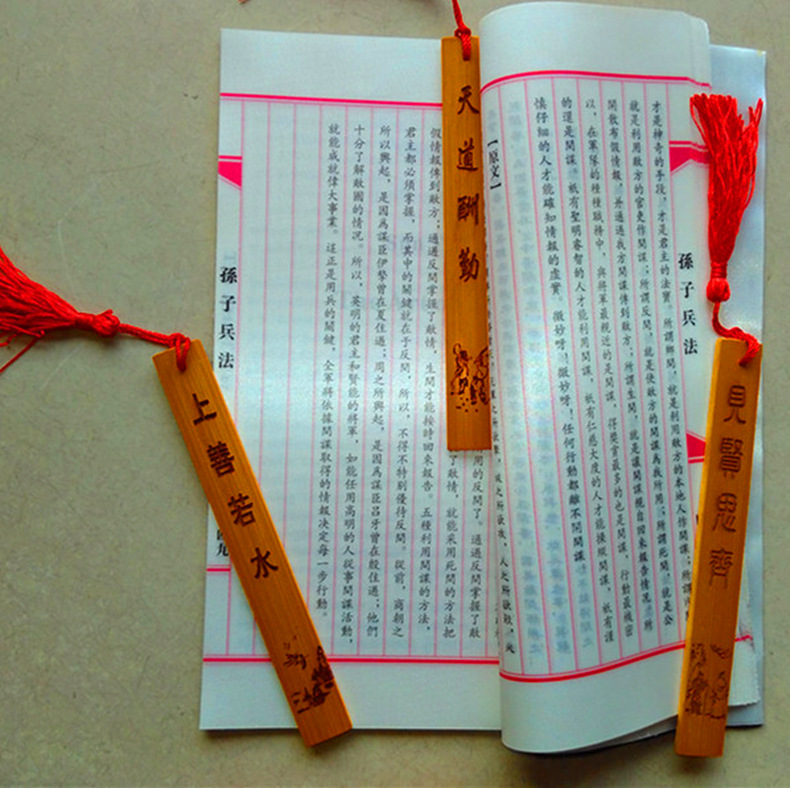 見賢思齊
孫子兵法
才是神奇的手段，才是君主的法寶。所謂鄉間，就是利用敵方的本地人作間諜；所謂
就是利用敵方的官吏作間諜；所謂反間，就是使敵方的間諜爲我所用；所謂死間，就是公
開散布假情報，并通過我方間諜傳到敵方；所謂生間，就是讓間諜親自回來報告情況。所
以，在軍隊的種種職務中，與將軍最親近的是間諜，得獎賞最多的也是間諜，行動最機密
的還是間諜。祇有聖明睿智的人才能利用間諜，祇有仁慈大度的人才能操縱間諜，祇有謹
慎仔細的人才能確知情報的虛實。微妙呀！微妙呀！任何行動都離不開間諜。
【原文】
之所欲擊，城之所欲攻，人之所欲殺，必
天道酬勤
用的反間了。通過反間掌握了敵
了敵情，就能采用死間的方法把
假情報傳到敵方；通過反間掌握了敵情，生間才能按時回來報告。五種利用間諜的方法，
君主都必須掌握，而其中的關鍵就在于反間，所以，不得不特別優待反間。從前，商朝之
所以興起，是因爲謀臣伊摯曾在夏住過；周之所興起，是因爲謀臣呂牙曾在殷住過；他們
十分了解敵國的情況。所以，英明的君主和賢能的將軍，如能任用高明的人從事間諜活動，
就能成就偉大事業。這正是用兵的關鍵，全軍將依據間諜取得的情報決定每一步行動。
孫子兵法
上善若水